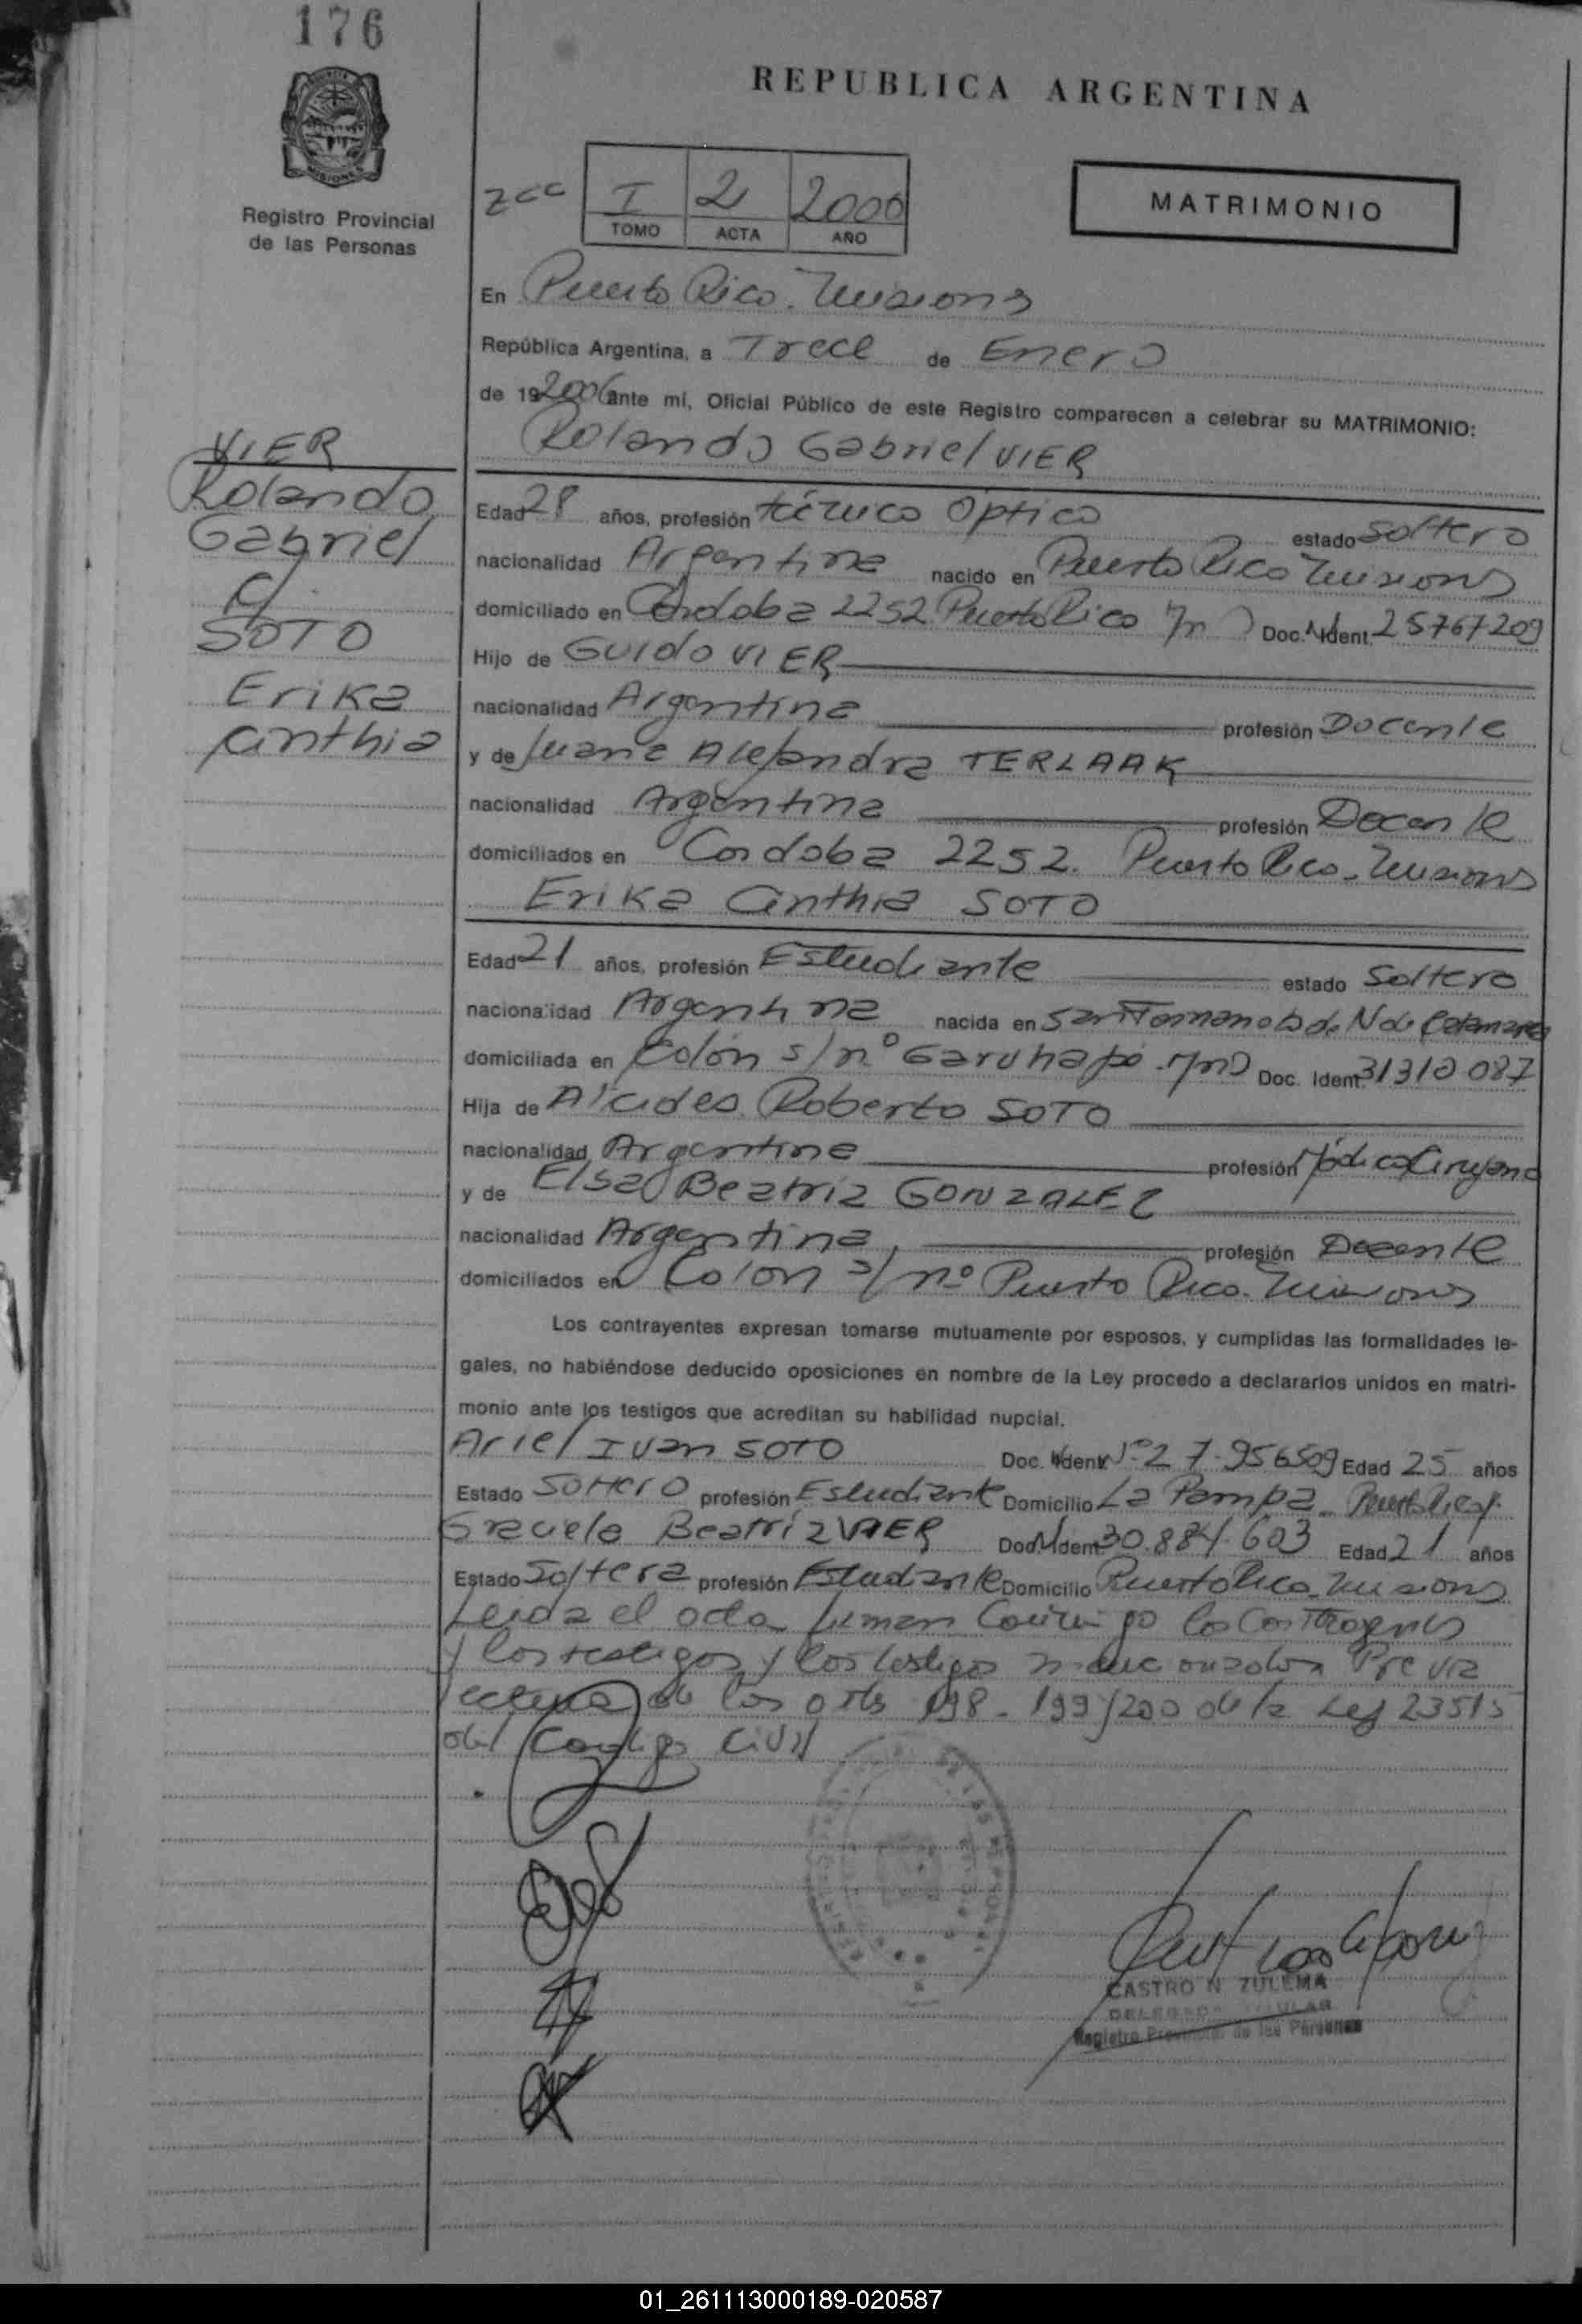 176
REPUBLICA ARGENTINA
MISIONES
Registro Provincial
de las Personas
zcc
I 2 2000
TOMO ACTA AÑO
MATRIMONIO
En Puerto Rico. Misiones
República Argentina, a Trece de Enero
de 19 ante mí, Oficial Público de este Registro comparecen a celebrar su MATRIMONIO:
Rolando Gabriel VIER
VIER
Rolando
Gabriel
c/.
SOTO
Erika
Cinthia
Edad 28 años, profesión técnico Optico estado soltero
nacionalidad Argentina nacido en Puerto Rico Misiones
domiciliado en Cordoba 2252 Puerto Rico Doc. Ident. 25767209
Hijo de GUIDO VIER
nacionalidad Argentina profesión Docente
y de Juana Alejandra TERLAAK
nacionalidad Argentina profesión Docente
domiciliados en Cordoba 2252. Puerto Rico - Misiones
Erika Cinthia SOTO
Edad 21 años, profesión Estudiante estado Soltero
nacionalidad Argentina nacida en San Fernando de N de Catamarca
domiciliada en Colón s/nº Garuhapé Doc. Ident. 31310087
Hija de Alcides Roberto SOTO
nacionalidad Argentina profesión Médico Cirujano
y de Elsa Beatriz GONZALEZ
nacionalidad Argentina, profesión Docente
domiciliados en Colon s/nº Puerto Rico. Misiones
Los contrayentes expresan tomarse mutuamente por esposos, y cumplidas las formalidades le-
gales, no habiéndose deducido oposiciones en nombre de la Ley procedo a declararlos unidos en matri-
monio ante los testigos que acreditan su habilidad nupcial.
Ariel Ivan SOTO Doc. Ident. Nº 27.956509 Edad 25 años
Estado Soltero profesión Estudiante Domicilio La Pampa - Puerto Rico
Graciela Beatriz VIER Doc. Ident. 30.884.603 Edad 21 años
Estado Soltera profesión Estudiante Domicilio Puerto Rico - Misiones
Leida el acta firman Conmigo los Contrayentes
y los testigos y los testigos mencionados Previa
lectura de los arts 198 - 199/200 de la Ley 23515
del Codigo Civil
CASTRO N ZULEMA
DELEGADA TITULAR
Registro Provincial de las Personas
01_261113000189-020587